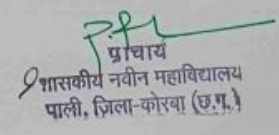 प्राचार्य
शासकीय नवीन महाविद्यालय
पाली, ज़िला-कोरबा (छ.ग.)